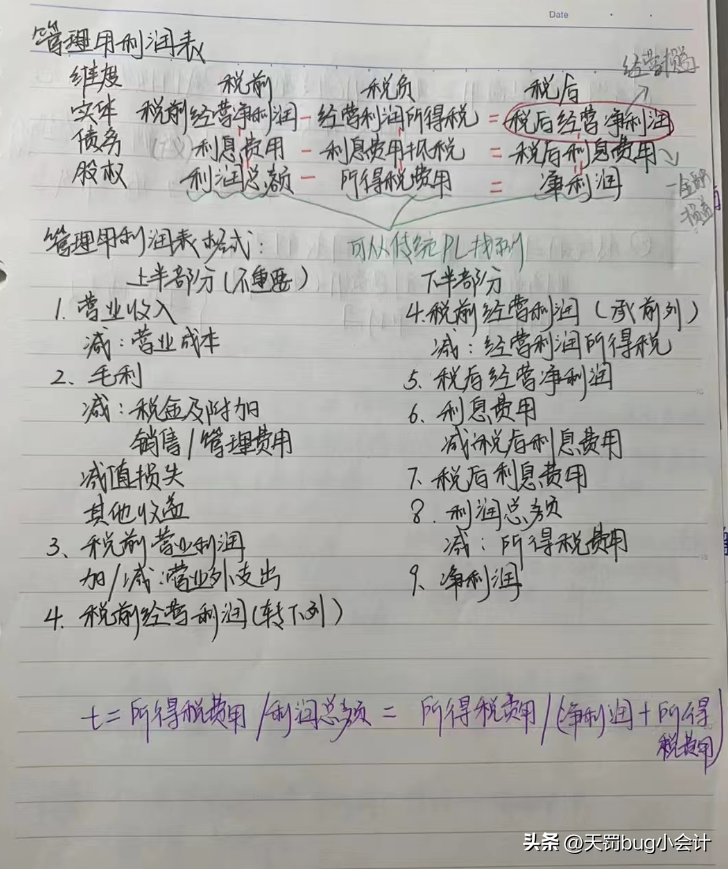 Date
管理用利润表
经营损益
维度 税前 税负 税后
实体 税前经营净利润 - 经营利润所得税 = 税后经营净利润
债务 利息费用 - 利息费用抵税 = 税后利息费用
股权 利润总额 - 所得税费用 = 净利润
金融损益
管理用利润表格式: 可从传统PL找到
上半部分(不重要)
1. 营业收入
减:营业成本
2. 毛利
减:税金及附加
销售/管理费用
减值损失
其他收益
3、税前营业利润
加/减:营业外支出
4. 税前经营利润(转下列)
下半部分
4.税前经营利润(承前列)
减:经营利润所得税
5. 税后经营净利润
6. 利息费用
减:税后利息费用
7. 税后利息费用
8. 利润总额
减:所得税费用
9、净利润
t=所得税费用/利润总额= 所得税费用/(净利润+所得
税费用)
头条 @天罚bug小会计